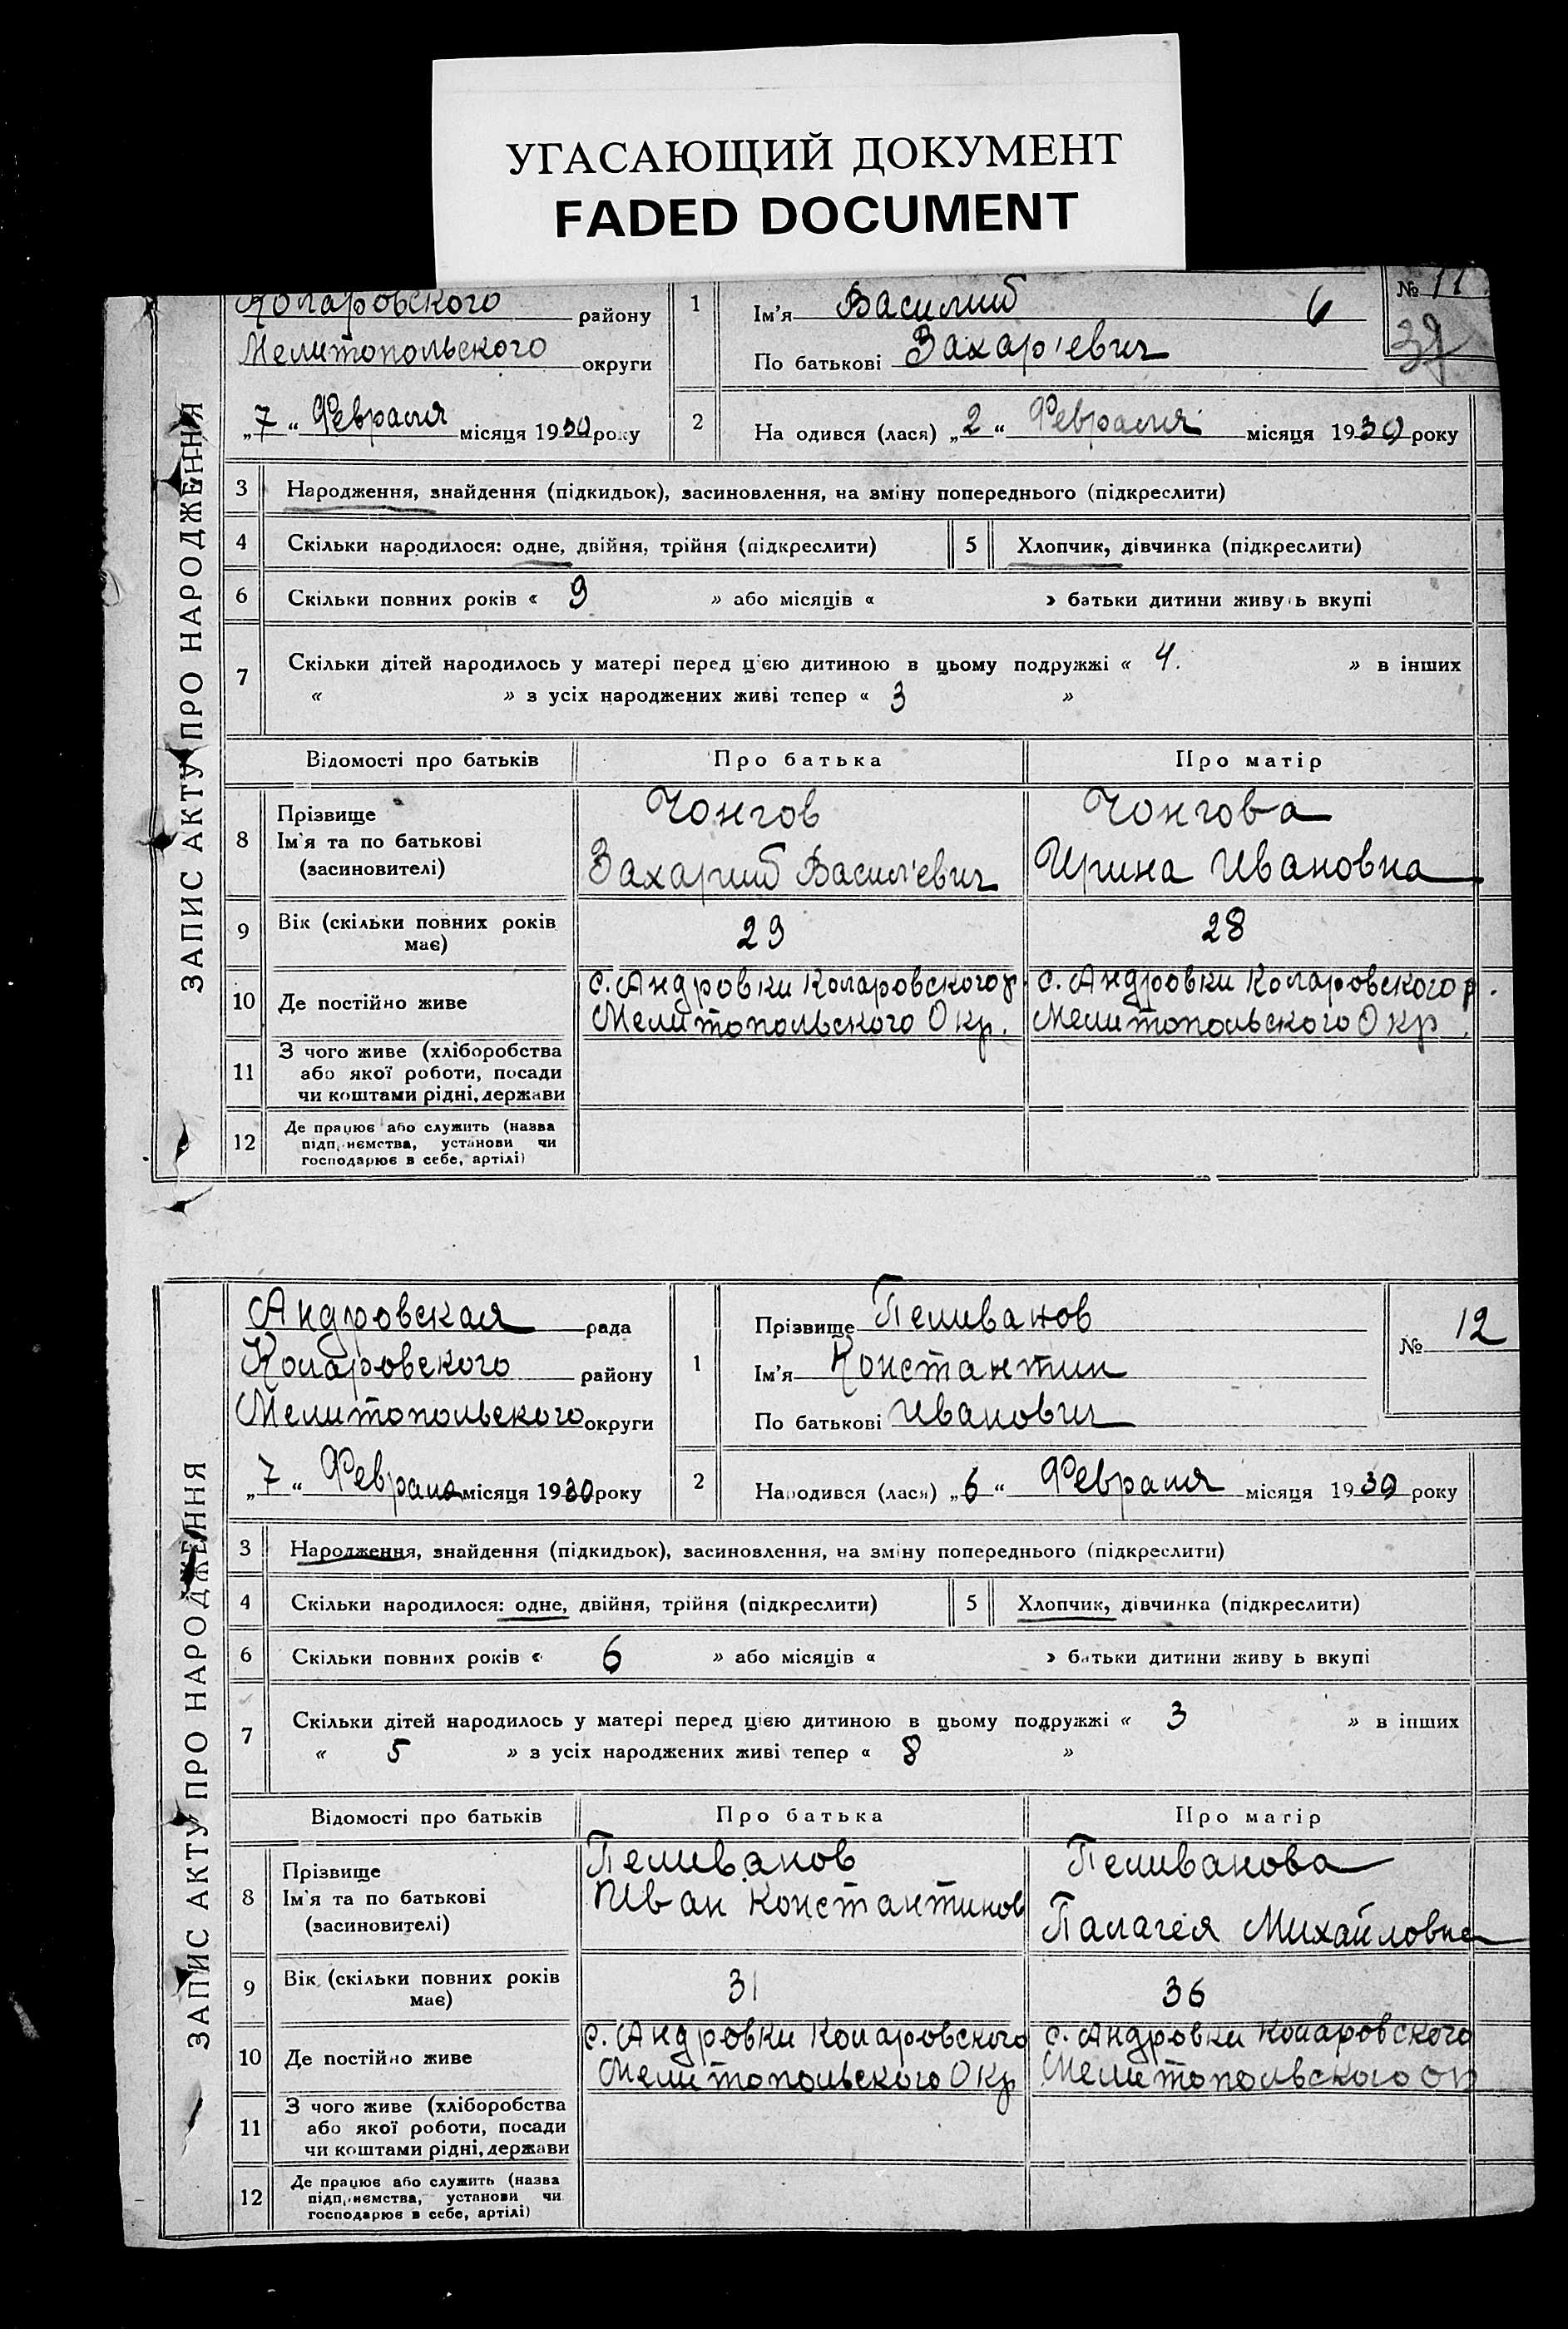 УГАСАЮЩИЙ ДОКУМЕНТ
FADED DOCUMENT
ЗАПИС АКТУ ПРО НАРОДЖЕННЯ
Коларовского району
Мелитопольского округи
„7“ Февраля місяця 1930 року
1 Ім'я Василий 6
По батькові Захар'евич
№ 11
37
2 На одився (лася) „2“ Февраля місяця 1930 року
3 Народження, знайдення (підкидьок), засиновлення, на зміну попереднього (підкреслити)
4 Скільки народилося: одне, двійня, трійня (підкреслити) 5 Хлопчик, дівчинка (підкреслити)
6 Скільки повних років « 9 » або місяців « » батьки дитини живу ь вкупі
7 Скільки дітей народилось у матері перед цією дитиною в цьому подружжі « 4. » в інших
« » з усіх народжених живі тепер « 3 »
Відомості про батьків Про батька Про матір
8 Прізвище
Ім'я та по батькові
(засиновителі)
Чонгов
Захарий Васил'евич
Чонгова
Ирина Ивановна
9 Вік (скільки повних років
має)
29 28
10 Де постійно живе
с. Андровки Коларовского р.
Мелитопольского Окр.
с. Андровки Коларовского р.
Мелитопольского Окр.
11 З чого живе (хліборобства
або якої роботи, посади
чи коштами рідні, держави
12 Де працює або служить (назва
підприємства, установи чи
господарює в себе, артілі)
ЗАПИС АКТУ ПРО НАРОДЖЕННЯ
Андровская рада
Коларовского району
Мелитопольского округи
„7“ Февраля місяця 1930 року
1 Прізвище Пеливанов
Ім'я Константин
По батькові Иванович
№ 12
2 Народився (лася) „6“ Февраля місяця 1930 року
3 Народження, знайдення (підкидьок), засиновлення, на зміну попереднього (підкреслити)
4 Скільки народилося: одне, двійня, трійня (підкреслити) 5 Хлопчик, дівчинка (підкреслити)
6 Скільки повних років « 6 » або місяців « » батьки дитини живу ь вкупі
7 Скільки дітей народилось у матері перед цією дитиною в цьому подружжі « 3 » в інших
« 5 » з усіх народжених живі тепер « 8 »
Відомості про батьків Про батька Про матір
8 Прізвище
Ім'я та по батькові
(засиновителі)
Пеливанов
Иван Константинов
Пеливанова
Палагея Михайловна
9 Вік (скільки повних років
має)
31 36
10 Де постійно живе
с. Андровки Коларовского
Мелитопольского Окр
с. Андровки Коларовского
Мелитопольского Ок
11 З чого живе (хліборобства
або якої роботи, посади
чи коштами рідні, держави
12 Де працює або служить (назва
підприємства, установи чи
господарює в себе, артілі)